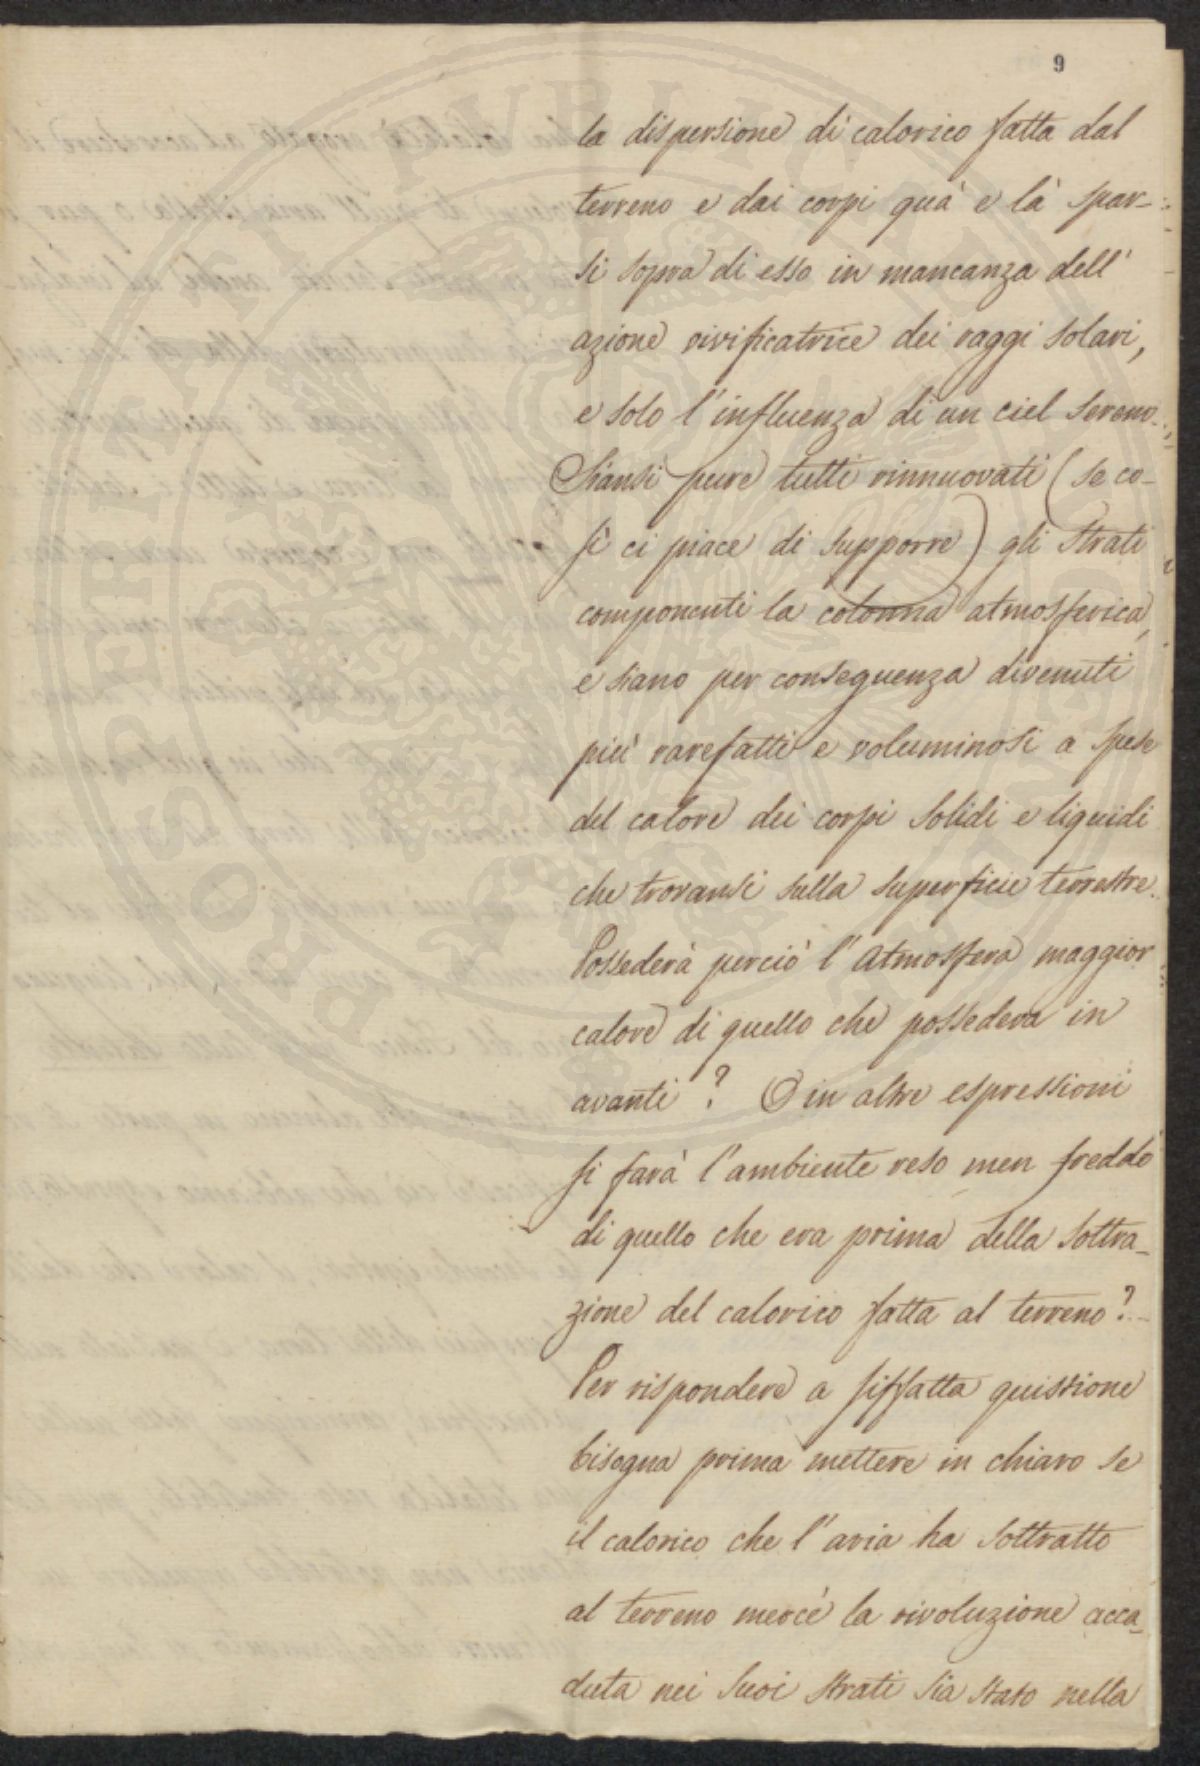 9
la dispersione di calorico fatta dal
terreno e dai corpi quà e là spar-
si sopra di esso in mancanza dell'
azione vivificatrice dei raggi solari,
e solo l'influenza di un ciel sereno.
Siansi pure tutti rinnuovati (se co-
sì ci piace di supporre) gli strati
componenti la colonna atmosferica,
e siano per conseguenza divenuti
più rarefatti e voluminosi a spese
del calore dei corpi solidi e liquidi
che trovansi sulla superficie terrestre.
Possederà perciò l'atmosfera maggior
calore di quello che possedeva in
avanti? O in altre espressioni
si farà l'ambiente reso men freddo
di quello che era prima della sottra-
zione del calorico fatta al terreno?
Per rispondere a siffatta quistione
bisogna prima mettere in chiaro se
il calorico che l'aria ha sottratto
al terreno mercè la rivoluzione acca-
duta nei suoi strati sia stato nella
PROSPERITAS PUBLICA